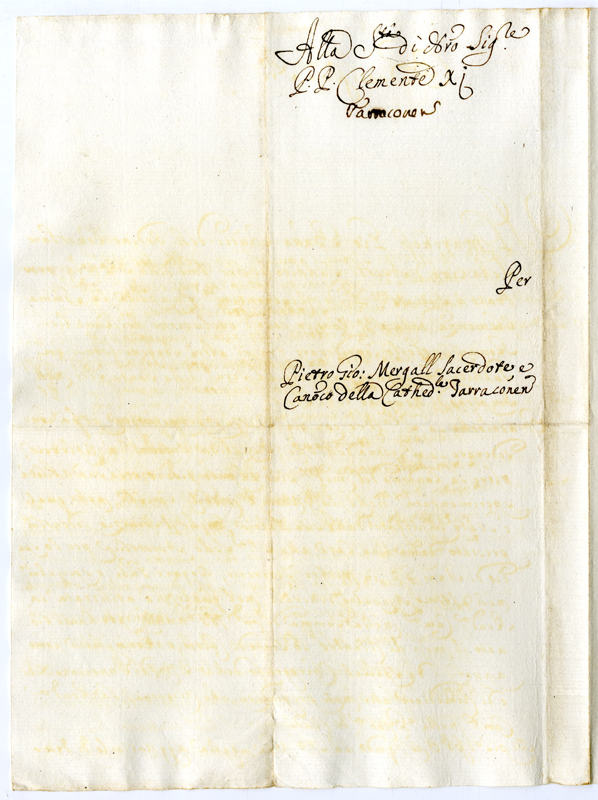 Alla Stà di Nro Sigre
P. P. Clemente Xj
Tarraconen
Per
Pietro Gio: Mergall Sacerdote e
Canoco della Cathedle Tarraconen